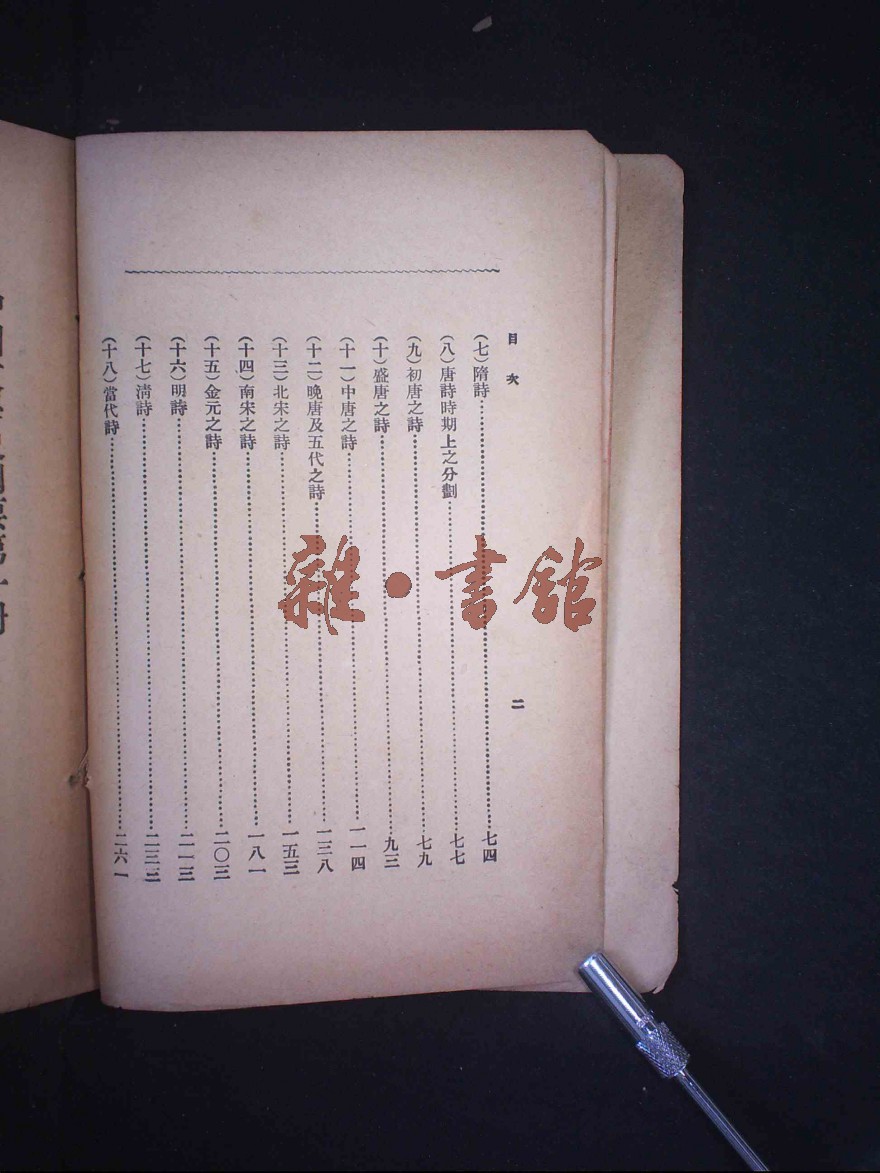 目次
二
(七)隋詩……七四
(八)唐詩時期上之分劃……七七
(九)初唐之詩……七九
(十)盛唐之詩……九三
(十一)中唐之詩……一一四
(十二)晚唐及五代之詩……一三八
(十三)北宋之詩……一五三
(十四)南宋之詩……一八一
(十五)金元之詩……二〇三
(十六)明詩……二一三
(十七)清詩……二三三
(十八)當代詩……二六一
雜·書館